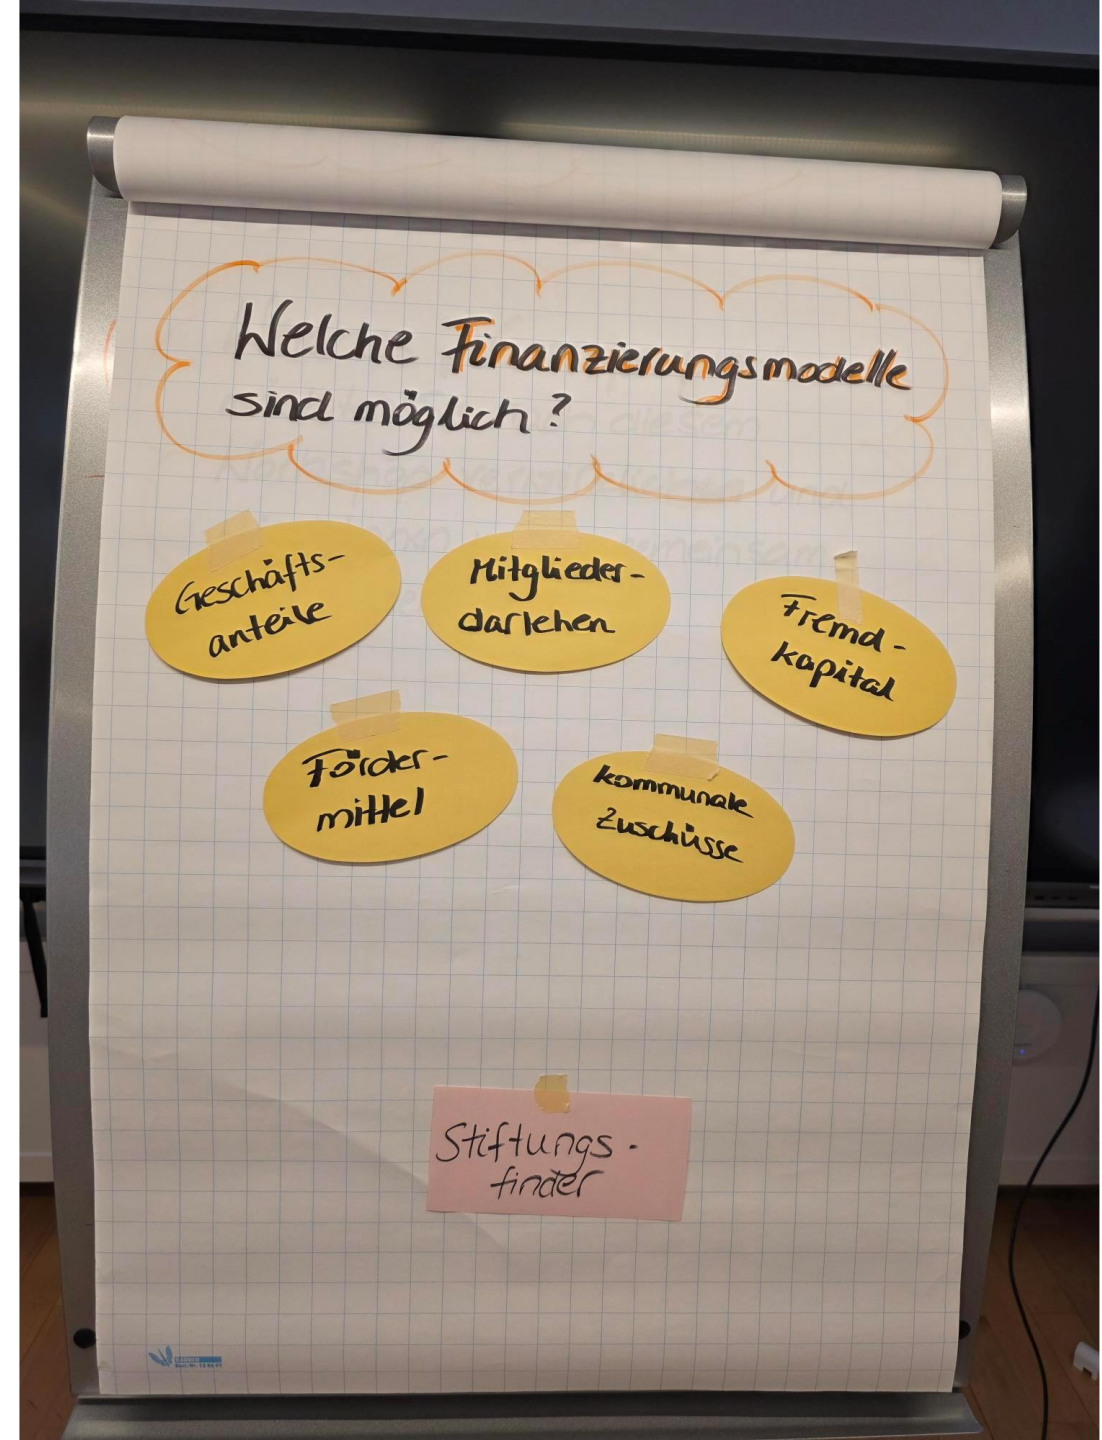 Welche Finanzierungsmodelle
sind möglich?
Geschäfts-
anteile
Mitglieder-
darlehen
Fremd-
kapital
Förder-
mittel
kommunale
Zuschüsse
Stiftungs-
finder